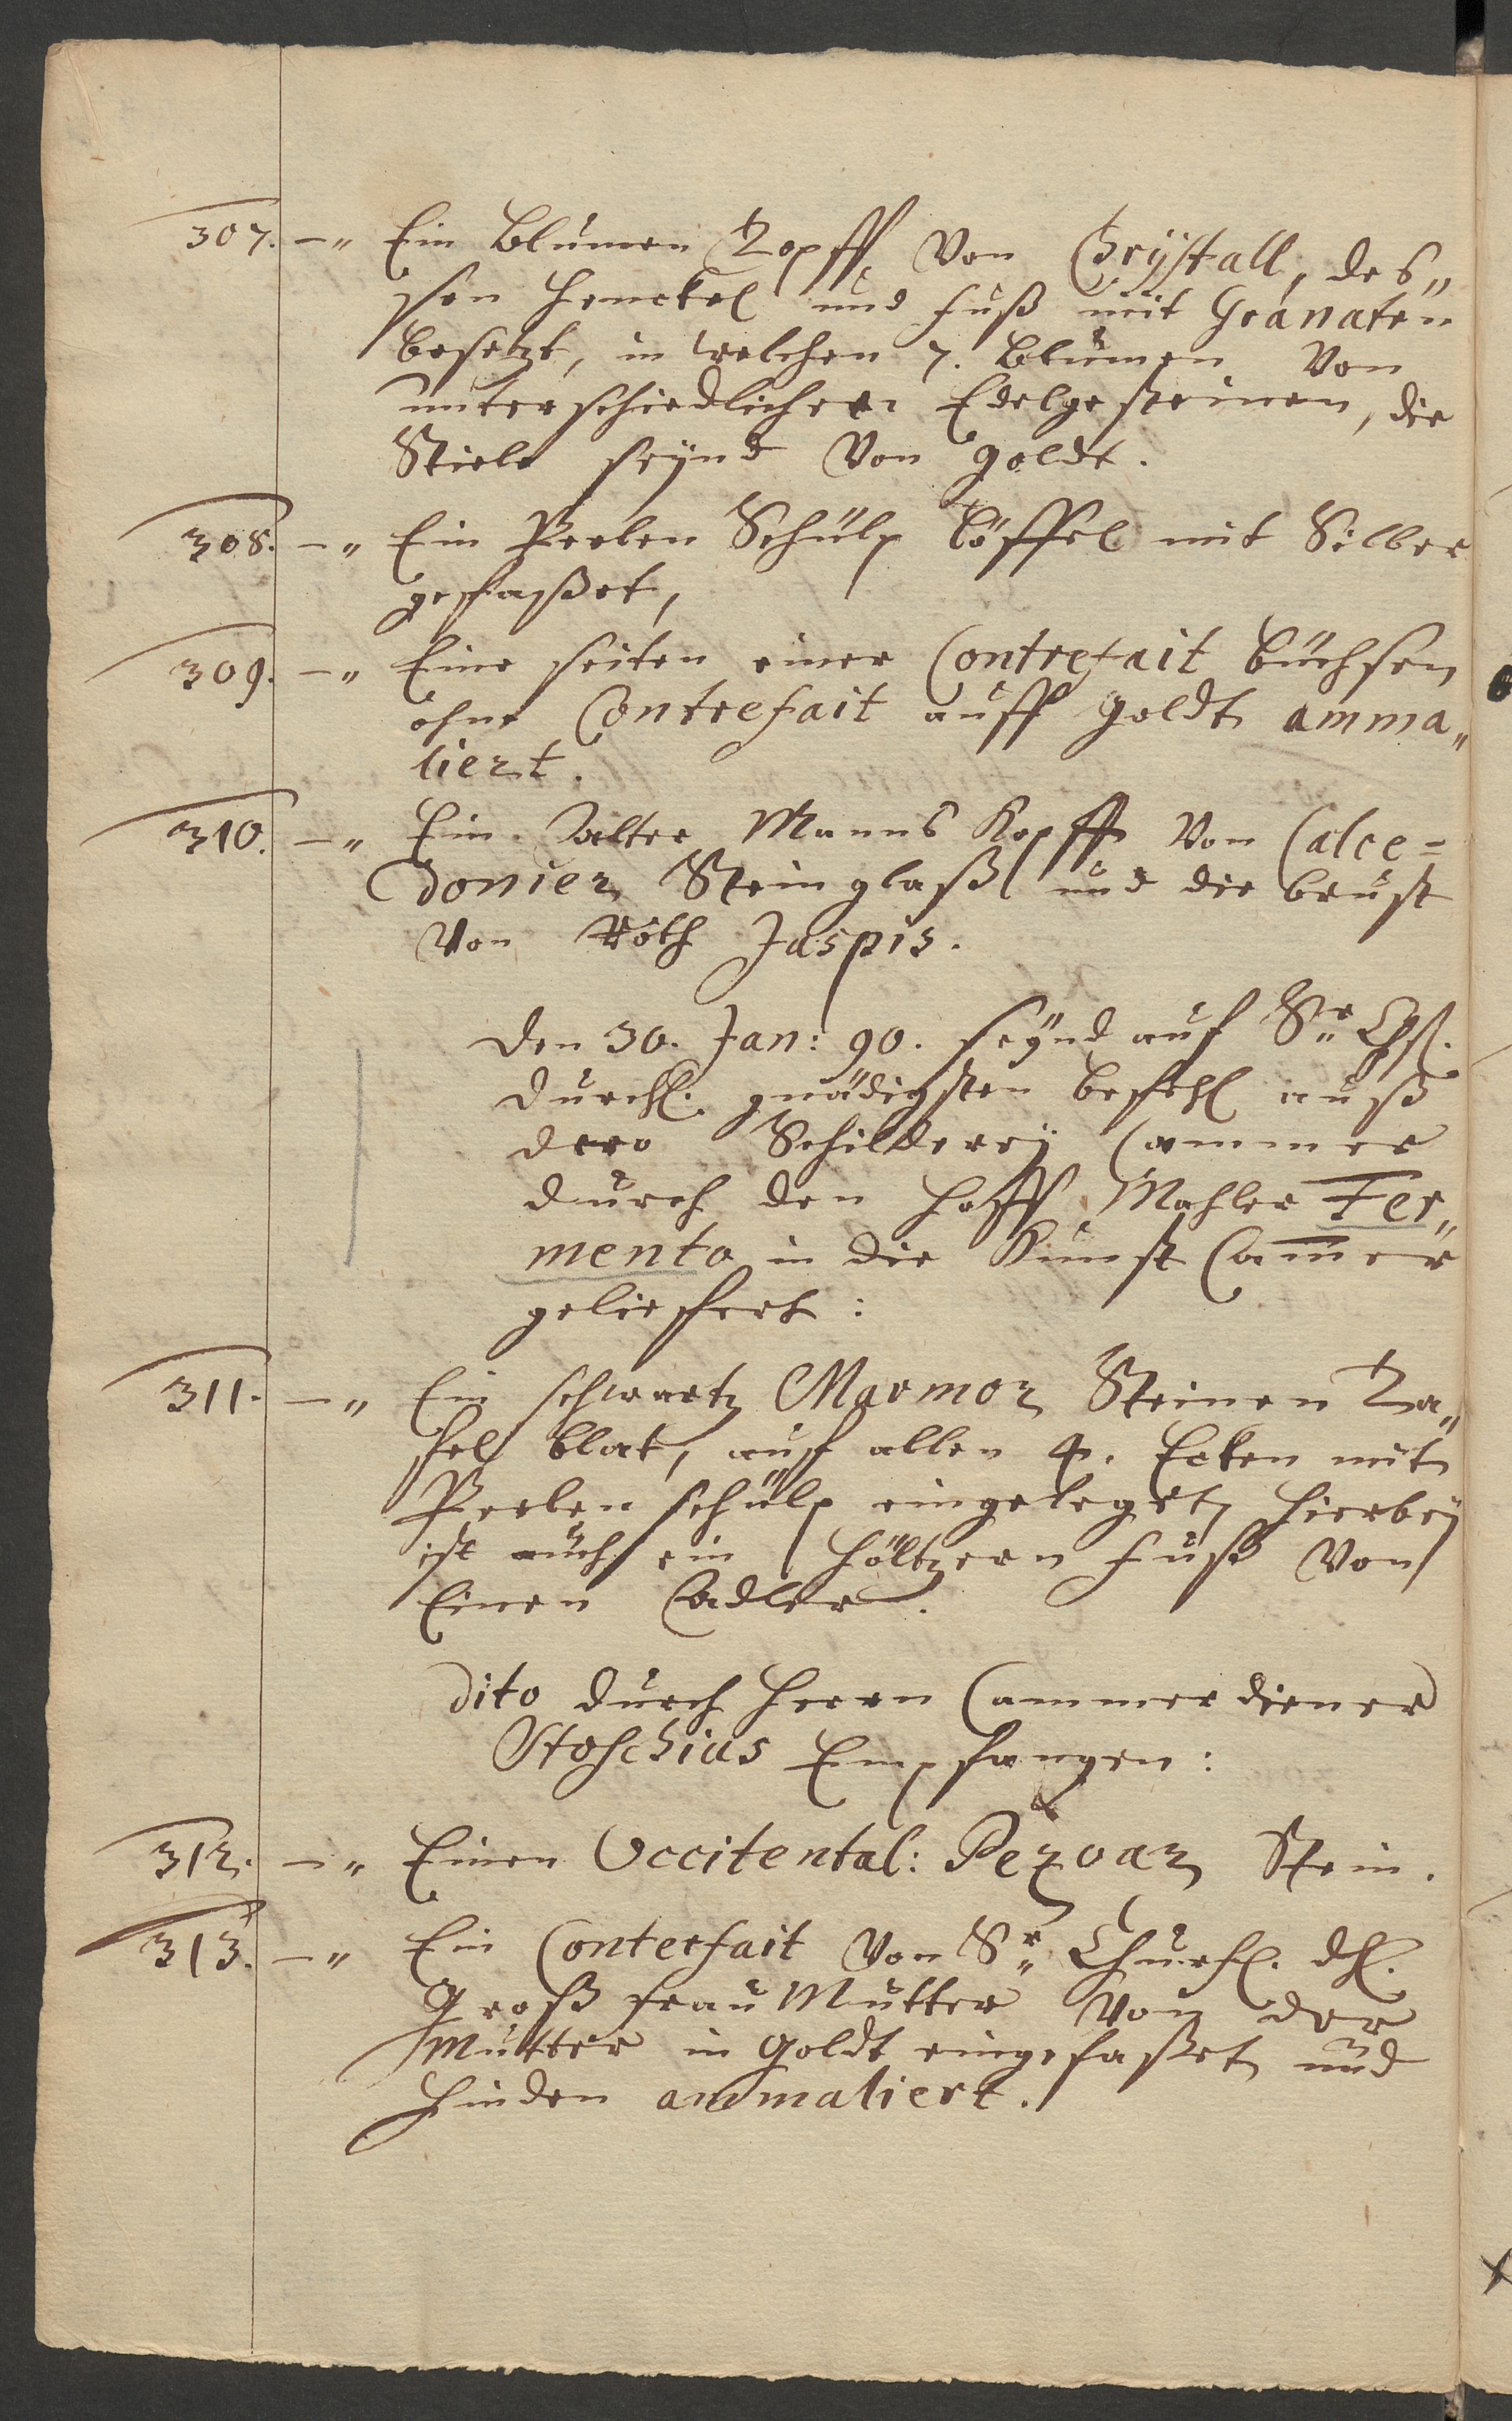 307. –„ Ein Blumen Topff von Crÿstall, des„
sen Henckel und Fuß mit Granaten
besetzt, in welchen 7. Blumen von
unterschiedlichen Edelgesteinen, die
Stiele seÿnd von Goldt.
308. –„ Ein Perlen Schülp Löffel mit Silber
gefaßet,
309. –„ Eine seiten einer Contrefait Büchsen
ohne Contrefait auff Goldt amma„
liert.
310. –„ Ein alter Manns Kopff von Calce=
donier Stein glaß und die brust
von Roth Jaspis.
Den 30. Jan: 90. seÿnd auf Sr. Chf.
Durchl. gnädigsten befehl auß
dero Schildereÿ Cammer
durch den Hoff Mahler Fer„
mento in die Kunst Cam̅er
geliefert:
311. –„ Ein schwartz Marmor Steinen Ta„
fel blat, auf allen 4. Ecken mit
Perlen schülp eingeleget, hierbeÿ
ist auch ein höltzern Fuß von
Einen Adler.
dito durch Herrn Cammerdiener
Stoschius Empfangen:
312. –„ Einen Occitental: Pezoar Stein.
313. –„ Ein Conterfait von Sr. Churfl. dhl.
Groß frau Mutter von der
Mutter in Goldt eingefaßet und
hinden ammaliert.